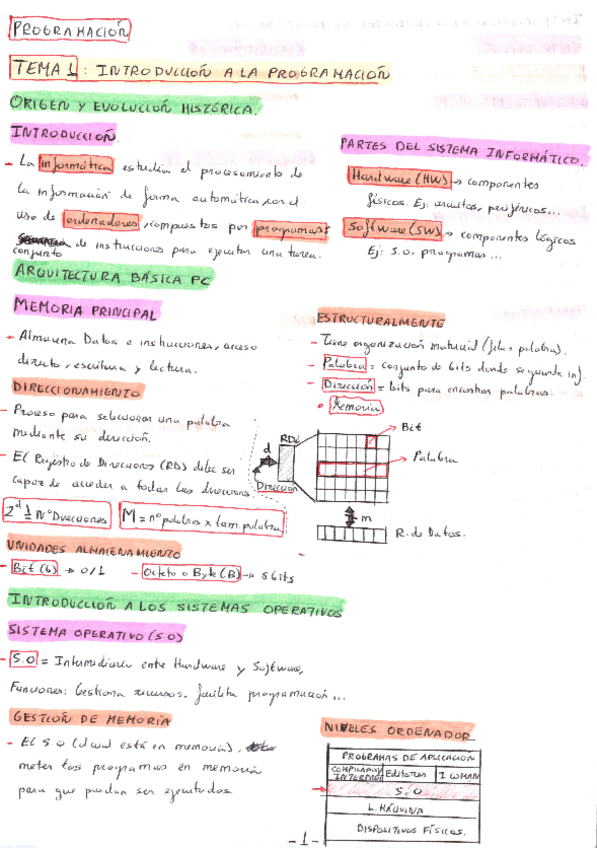 PROGRAMACIÓN
TEMA 1: INTRODUCCIÓN A LA PROGRAMACIÓN
ORIGEN Y EVOLUCIÓN HISTÓRICA.
INTRODUCCIÓN.
- La informática estudia el procesamiento de
la información de forma automática por el
uso de ordenadores, compuestos por programas:
conjunto de instrucciones para ejecutar una tarea.
PARTES DEL SISTEMA INFORMÁTICO.
Hardware (HW) → componentes
físicos. Ej: circuitos, periféricos...
Software (SW) → componentes lógicos
Ej: S.O, programas...
ARQUITECTURA BÁSICA PC
MEMORIA PRINCIPAL
- Almacena Datos e instrucciones, acceso
directo, escritura y lectura.
DIRECCIONAMIENTO
- Proceso para seleccionar una palabra
mediante su dirección.
- El Registro de Direcciones (RD) debe ser
capaz de acceder a todas las direcciones.
2^d Nº Direcciones
M = nº palabras x tam. palabra
ESTRUCTURALMENTE
- Tiene organización matricial (fila, palabra).
- Palabra = conjunto de bits donde se guarda inf.
- Dirección = bits para encontrar palabras.
• Memoria
Bit
RDi
Palabra
d
Dirección
m
R. de Datos.
UNIDADES ALMACENAMIENTO
- Bit (b) → 0/1
- Octeto o Byte (B) → 8 bits
INTRODUCCIÓN A LOS SISTEMAS OPERATIVOS
SISTEMA OPERATIVO (S.O)
- S.O = Intermediario entre Hardware y Software,
Funciones: Gestiona recursos, facilita programación...
GESTIÓN DE MEMORIA
- El S.O (el cual está en memoria),
meter los programas en memoria
para que puedan ser ejecutados
NIVELES ORDENADOR
PROGRAMAS DE APLICACIÓN
Editores
S.O
L. MÁQUINA
DISPOSITIVOS FÍSICOS.
- 1 -